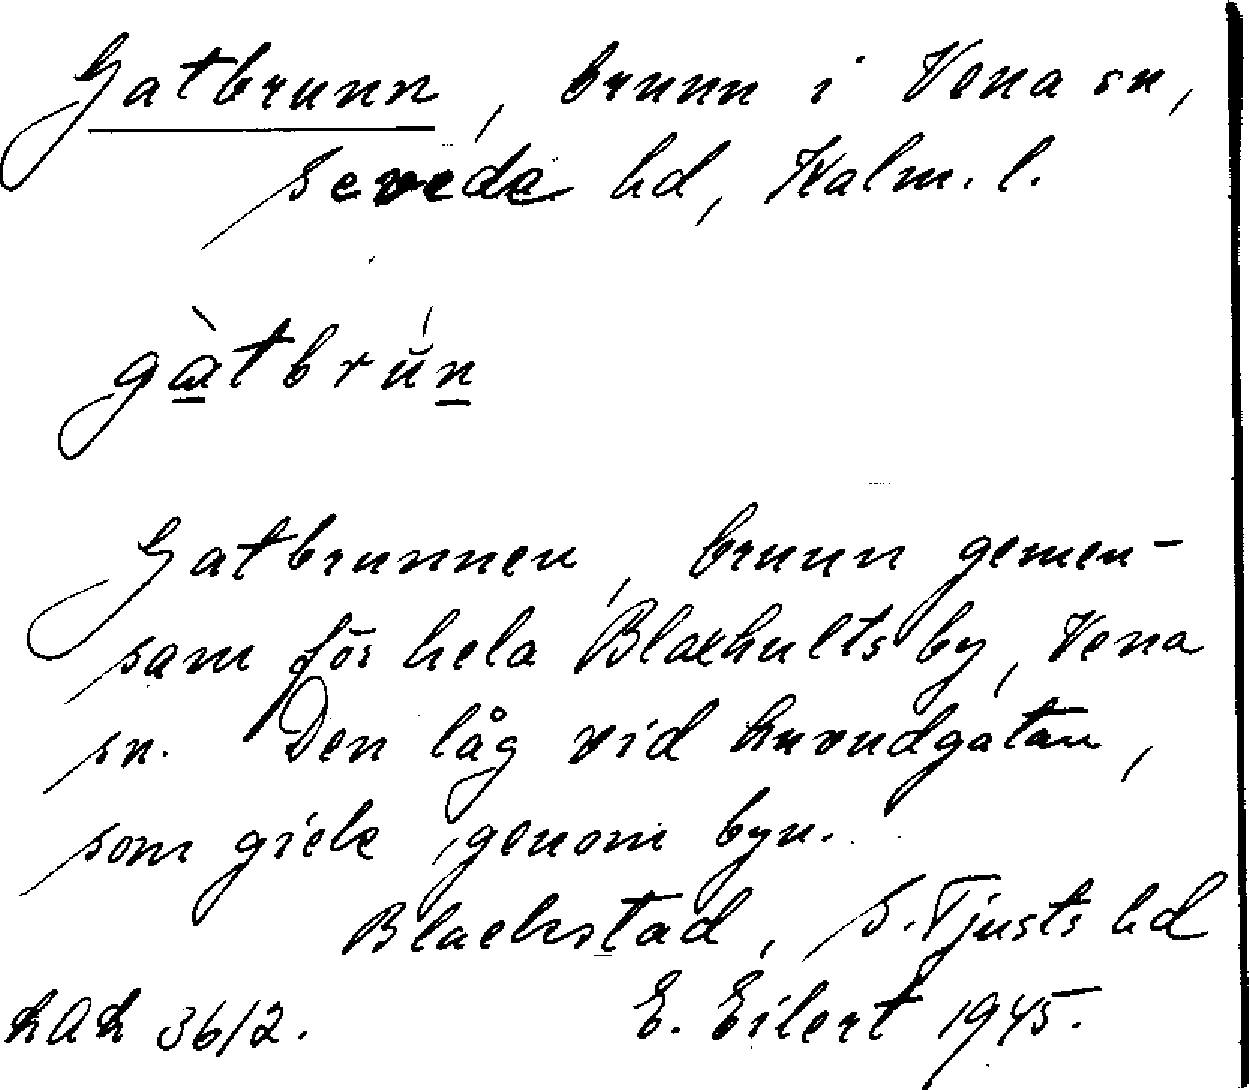 Gatbrunn, brunn i Vena sn,
Sevede hd, Kalm. l.
gàtbrún
Gatbrunnen, brunn gemen-
sam för hela Blaekhults by, Vena
sn. Den låg vid huvudgatan,
som gick genom byn.
Blackstad, S. Tjusts hd
E. Eilert 1945.
LAL 3612.